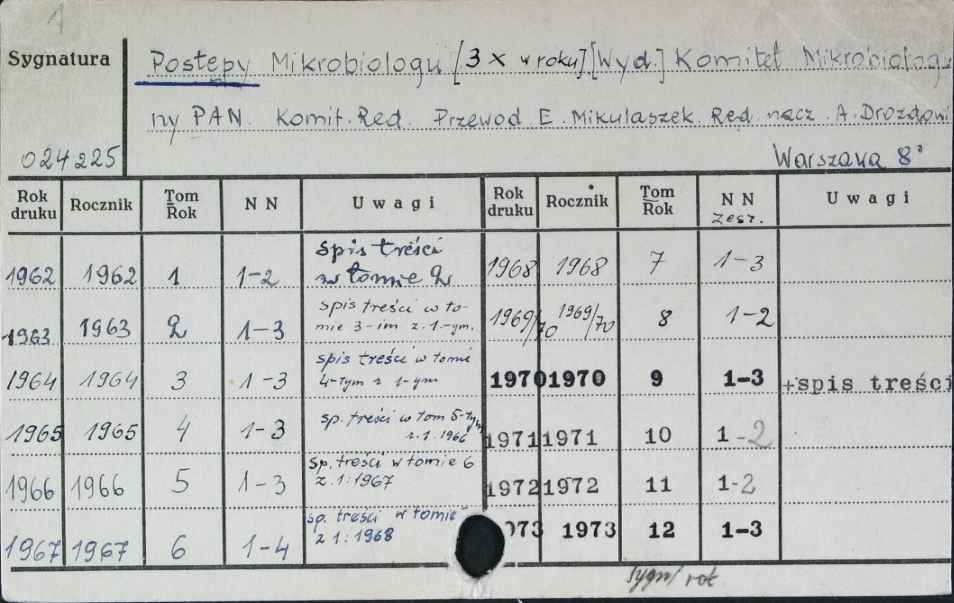 1
Sygnatura
Postępy Mikrobiologii [3 x w roku] [Wyd.] Komitet Mikrobiologi
ny PAN. Komit. Red. Przewod E. Mikulaszek Red. nacz. A. Drozdowi
024225 Warszawa 8°
Rok druku Rocznik Tom = Rok NN Uwagi Rok druku Rocznik Tom = Rok NN zesz. Uwagi
1962 1962 1 1-2 spis treści w tomie 2 1968 1968 7 1-3
1963 1963 2 1-3 spis treści w to-mie 3-im z. 1.-ym. 1969/70 1969/70 8 1-2
1964 1964 3 1-3 spis treści w tomie 4-tym z 1-ym 1970 1970 9 1-3 +spis treści
1965 1965 4 1-3 sp. treści w tom 5-tym z.1. 1966 1971 1971 10 1-2
1966 1966 5 1-3 sp. treści w tomie 6 z. 1:1967 1972 1972 11 1-2
1967 1967 6 1-4 sp. treści w tomie z 1:1968 073 1973 12 1-3
sygn/ rok